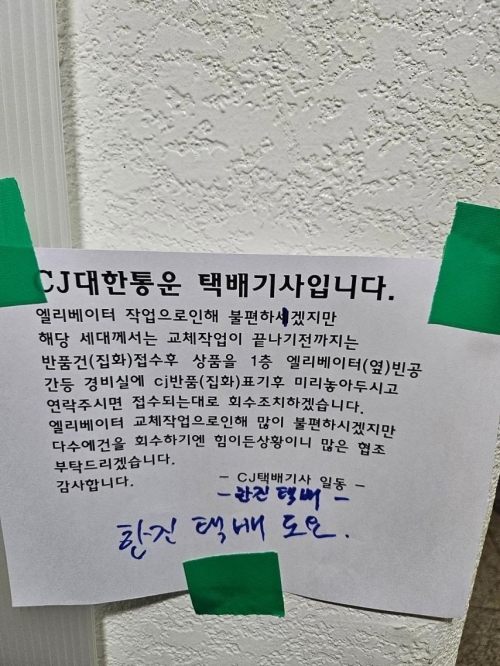 CJ대한통운 택배기사입니다.
엘리베이터 작업으로인해 불편하시겠지만
해당 세대께서는 교체작업이 끝나기전까지는
반품건(집화)접수후 상품을 1층 엘리베이터(옆)빈공
간등 경비실에 cj반품(집화)표기후 미리놓아두시고
연락주시면 접수되는대로 회수조치하겠습니다.
엘리베이터 교체작업으로인해 많이 불편하시겠지만
다수에건을 회수하기엔 힘이든상황이니 많은 협조
부탁드리겠습니다.
감사합니다.
- CJ택배기사 일동 -
- 한진택배 -
한진 택배 도요.